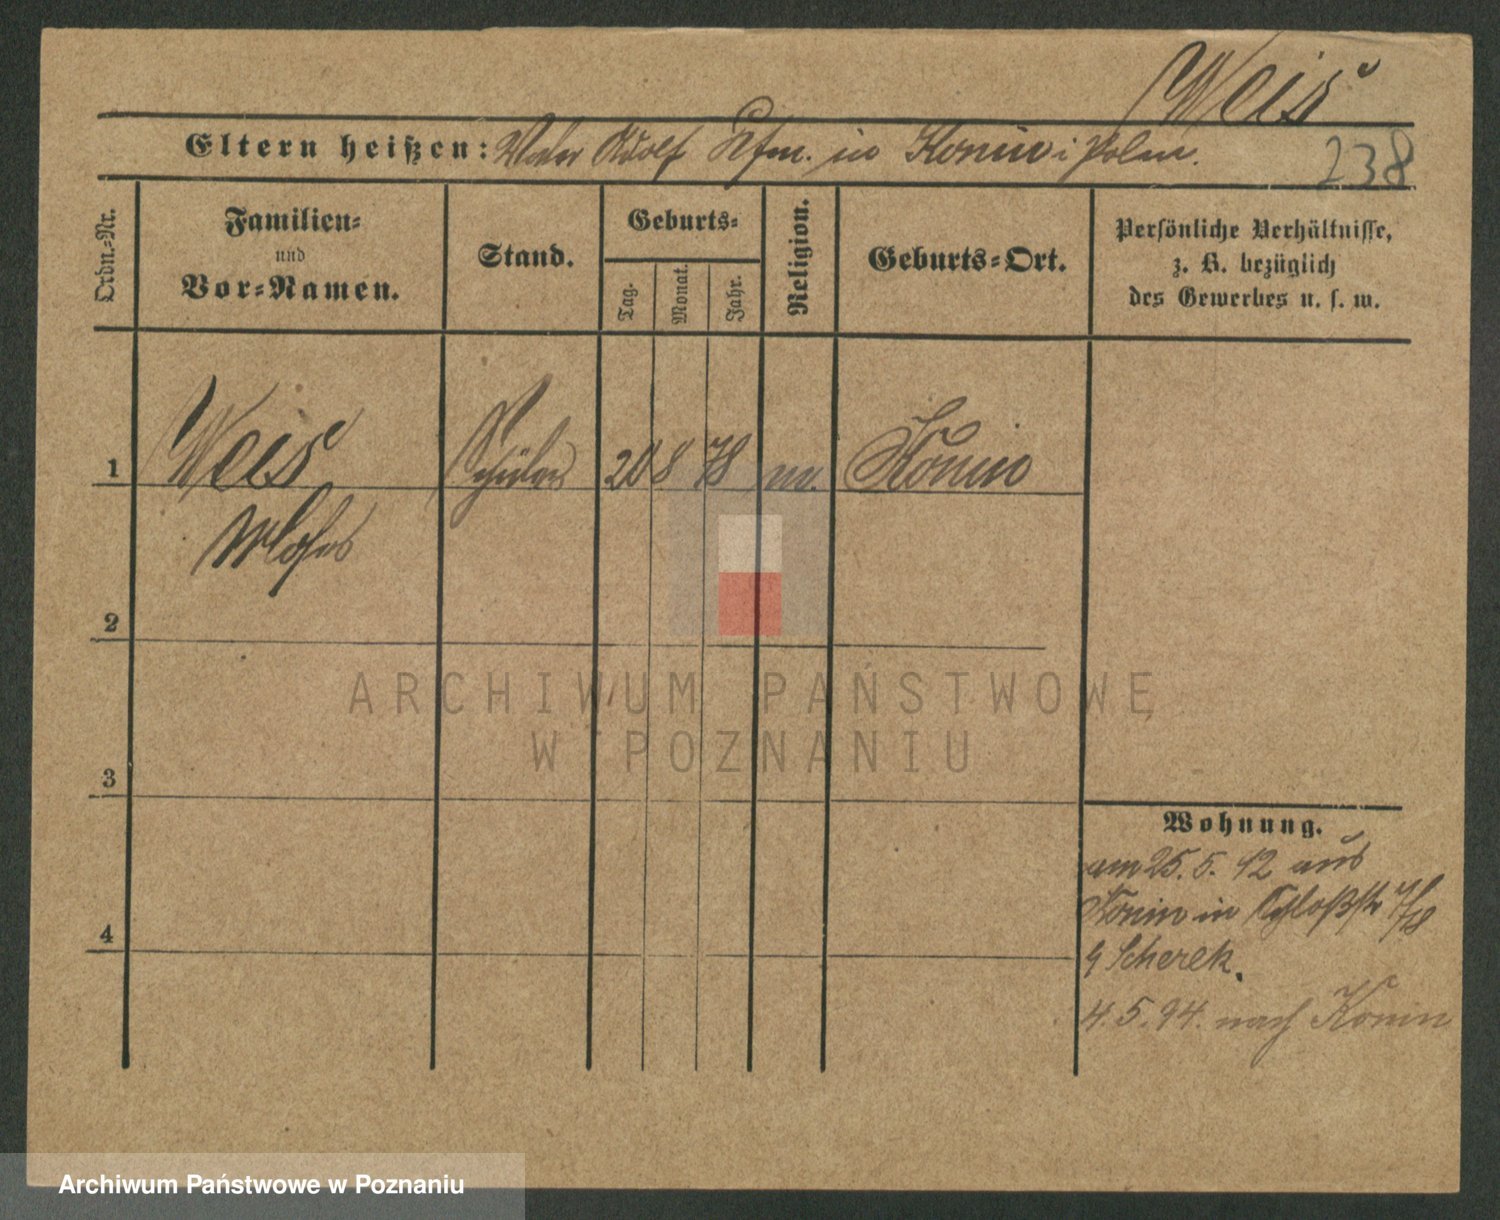 Weis
Eltern heißen: Vater Adolf Kfm. in Konin i Polen.
238
Ordn.-Nr.
Familien-
und
Vor-Namen.
Stand.
Geburts-
Tag.
Monat.
Jahr.
Religion.
Geburts-Ort.
Persönliche Verhältnisse,
z. B. bezüglich
des Gewerbes u. s. w.
1
Weis Schüler 20 8 78 Konin
2
3
4
Wohnung.
am 25. 5. 92 aus
Konin in Schloßstr 7/8
Scherek.
4. 5. 94. nach Konin
ARCHIWUM PAŃSTWOWE
W POZNANIU
Archiwum Państwowe w Poznaniu